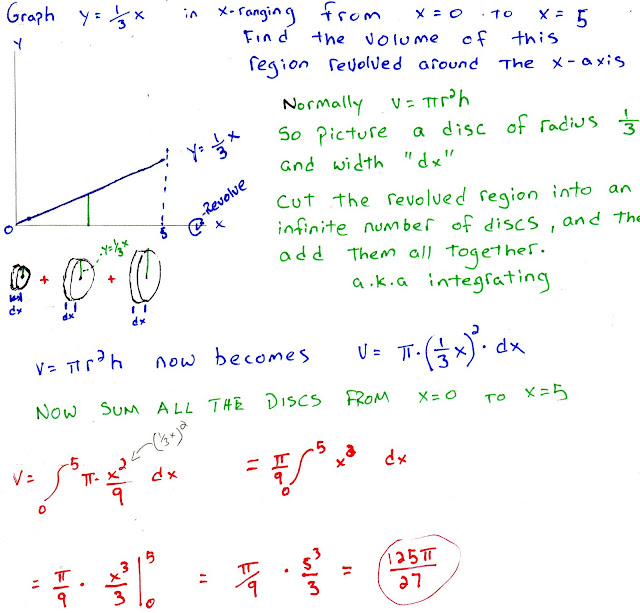 Graph y = 1/3 x in x-ranging from x = 0 to x = 5
Find the volume of this
region revolved around the x-axis
Y
Normally V = πr²h
So picture a disc of radius 1/3
y = 1/3 x
and width "dx"
Revolve
Cut the revolved region into an
0 5 x
infinite number of discs, and the
y = 1/3 x
add them all together.
+ +
a.k.a integrating
dx dx dx
V = πr²h now becomes V = π·(1/3 x)²·dx
NOW SUM ALL THE DISCS FROM x=0 TO x=5
(1/3 x)²
V = ∫₀⁵ π· x²/9 dx = π/9 ∫₀⁵ x² dx
= π/9 · x³/3 |₀⁵ = π/9 · 5³/3 = 125π/27